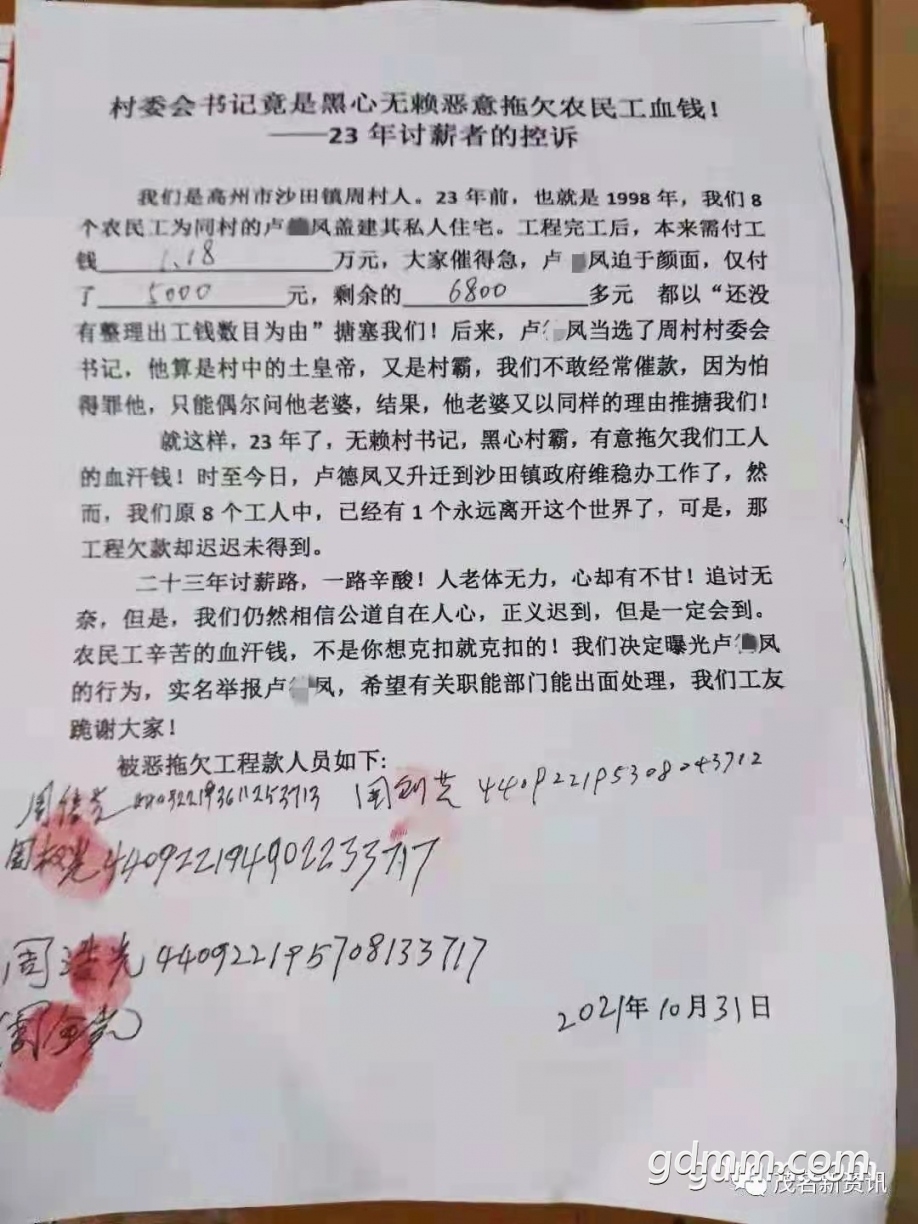 村委会书记竟是黑心无赖恶意拖欠农民工血钱！
——23 年讨薪者的控诉
我们是高州市沙田镇周村人。23 年前，也就是 1998 年，我们 8
个农民工为同村的卢 凤盖建其私人住宅。工程完工后，本来需付工
钱 1.18 万元，大家催得急，卢 凤迫于颜面，仅付
了 5000 元，剩余的 6800 多元 都以“还没
有整理出工钱数目为由”搪塞我们！后来，卢 凤当选了周村村委会
书记，他算是村中的土皇帝，又是村霸，我们不敢经常催款，因为怕
得罪他，只能偶尔问他老婆，结果，他老婆又以同样的理由推搪我们！
就这样，23 年了，无赖村书记，黑心村霸，有意拖欠我们工人
的血汗钱！时至今日，卢德凤又升迁到沙田镇政府维稳办工作了，然
而，我们原 8 个工人中，已经有 1 个永远离开这个世界了，可是，那
工程欠款却迟迟未得到。
二十三年讨薪路，一路辛酸！人老体无力，心却有不甘！追讨无
奈，但是，我们仍然相信公道自在人心，正义迟到，但是一定会到。
农民工辛苦的血汗钱，不是你想克扣就克扣的！我们决定曝光卢 凤
的行为，实名举报卢 凤，希望有关职能部门能出面处理，我们工友
跪谢大家！
被恶拖欠工程款人员如下：
周 440922195308043712
周 光 440922194902233717
周浩光 440922195708133717
周
2021年10月31日
gdmm.com
茂名新资讯